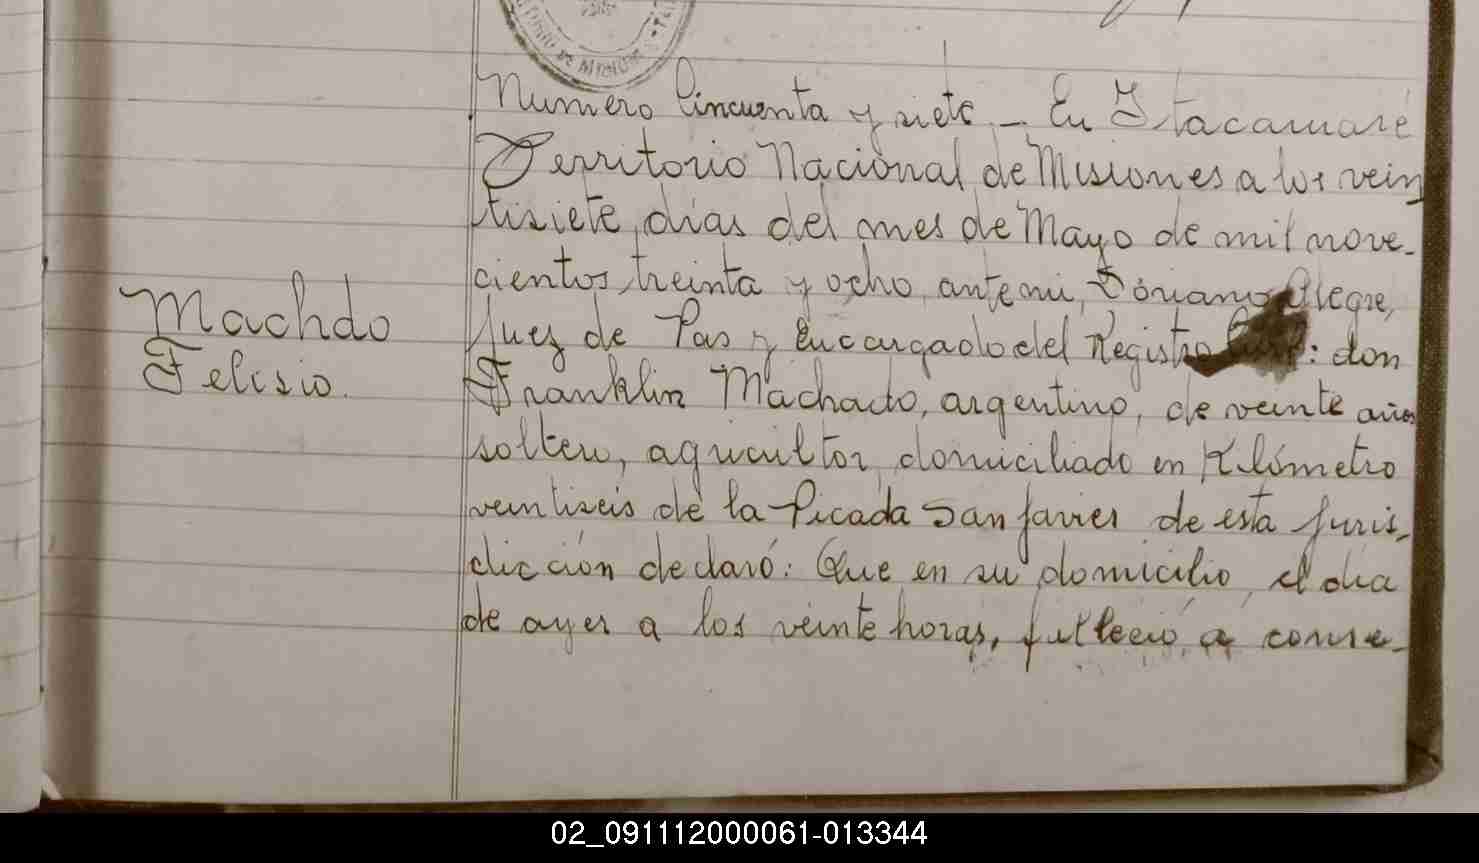 Numero Cincuenta y siete_ En Itacaruaré
Territorio Nacional de Misiones a los vein
tisiete dias del mes de Mayo de mil nove-
cientos treinta y ocho, ante mi, Alegre,
Machdo
Juez de Pas y Encargado del Registro : don
Felisio.
Franklin Machado, argentino, de veinte años
soltero, agricultor domiciliado en Kilómetro
veintiseis de la Picada San Javier de esta Juris-
dicción declaró: Que en su domicilio, el dia
de ayer a los veinte horas, falleció, a conse-
02_091112000061-013344